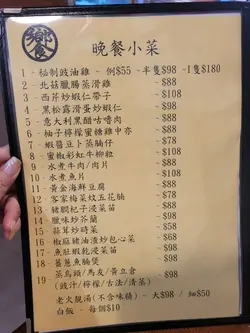 饗食
晚餐小菜
1 - 秘制豉油雞 - 例$55 -半隻$98 -1隻$180
2 - 北菇臘腸蒸滑雞 -$88
3 - 西芹炒蝦仁帶子 -$108
4 - 黑松露滑蛋炒蝦仁 -$98
5 - 意大利黑醋咕嚕肉 -$88
6 - 柚子檸檬蜜糖雞中亦 -$88
7 - 蝦醬豆卜蒸腩仔 -$78
8 - 蜜椒彩虹牛柳粒 -$108
9 - 水煮牛肉/肉片 -$108
10 - 水煮魚片 -$108
11 - 黃金海鮮豆腐 -$88
12 - 客家梅菜炆五花腩 -$78
13 - 豬膶杞子浸菜苗 -$68
14 - 臘味炒芥蘭 -$78
15 - 蒜茸炒時菜 -$58
16 - 椒麻豬油渣炒包心菜 -$68
17 - 魚肚蝦乾浸菜苗 -$98
18 - 薑蔥魚腩煲 -$98
19 - 蒸烏頭/馬友/黃立倉 -$98
(豉汁/檸檬/古法/清蒸)
老火靚湯(不含味精) - 大$98 / 細$50
白飯 - 每個$10